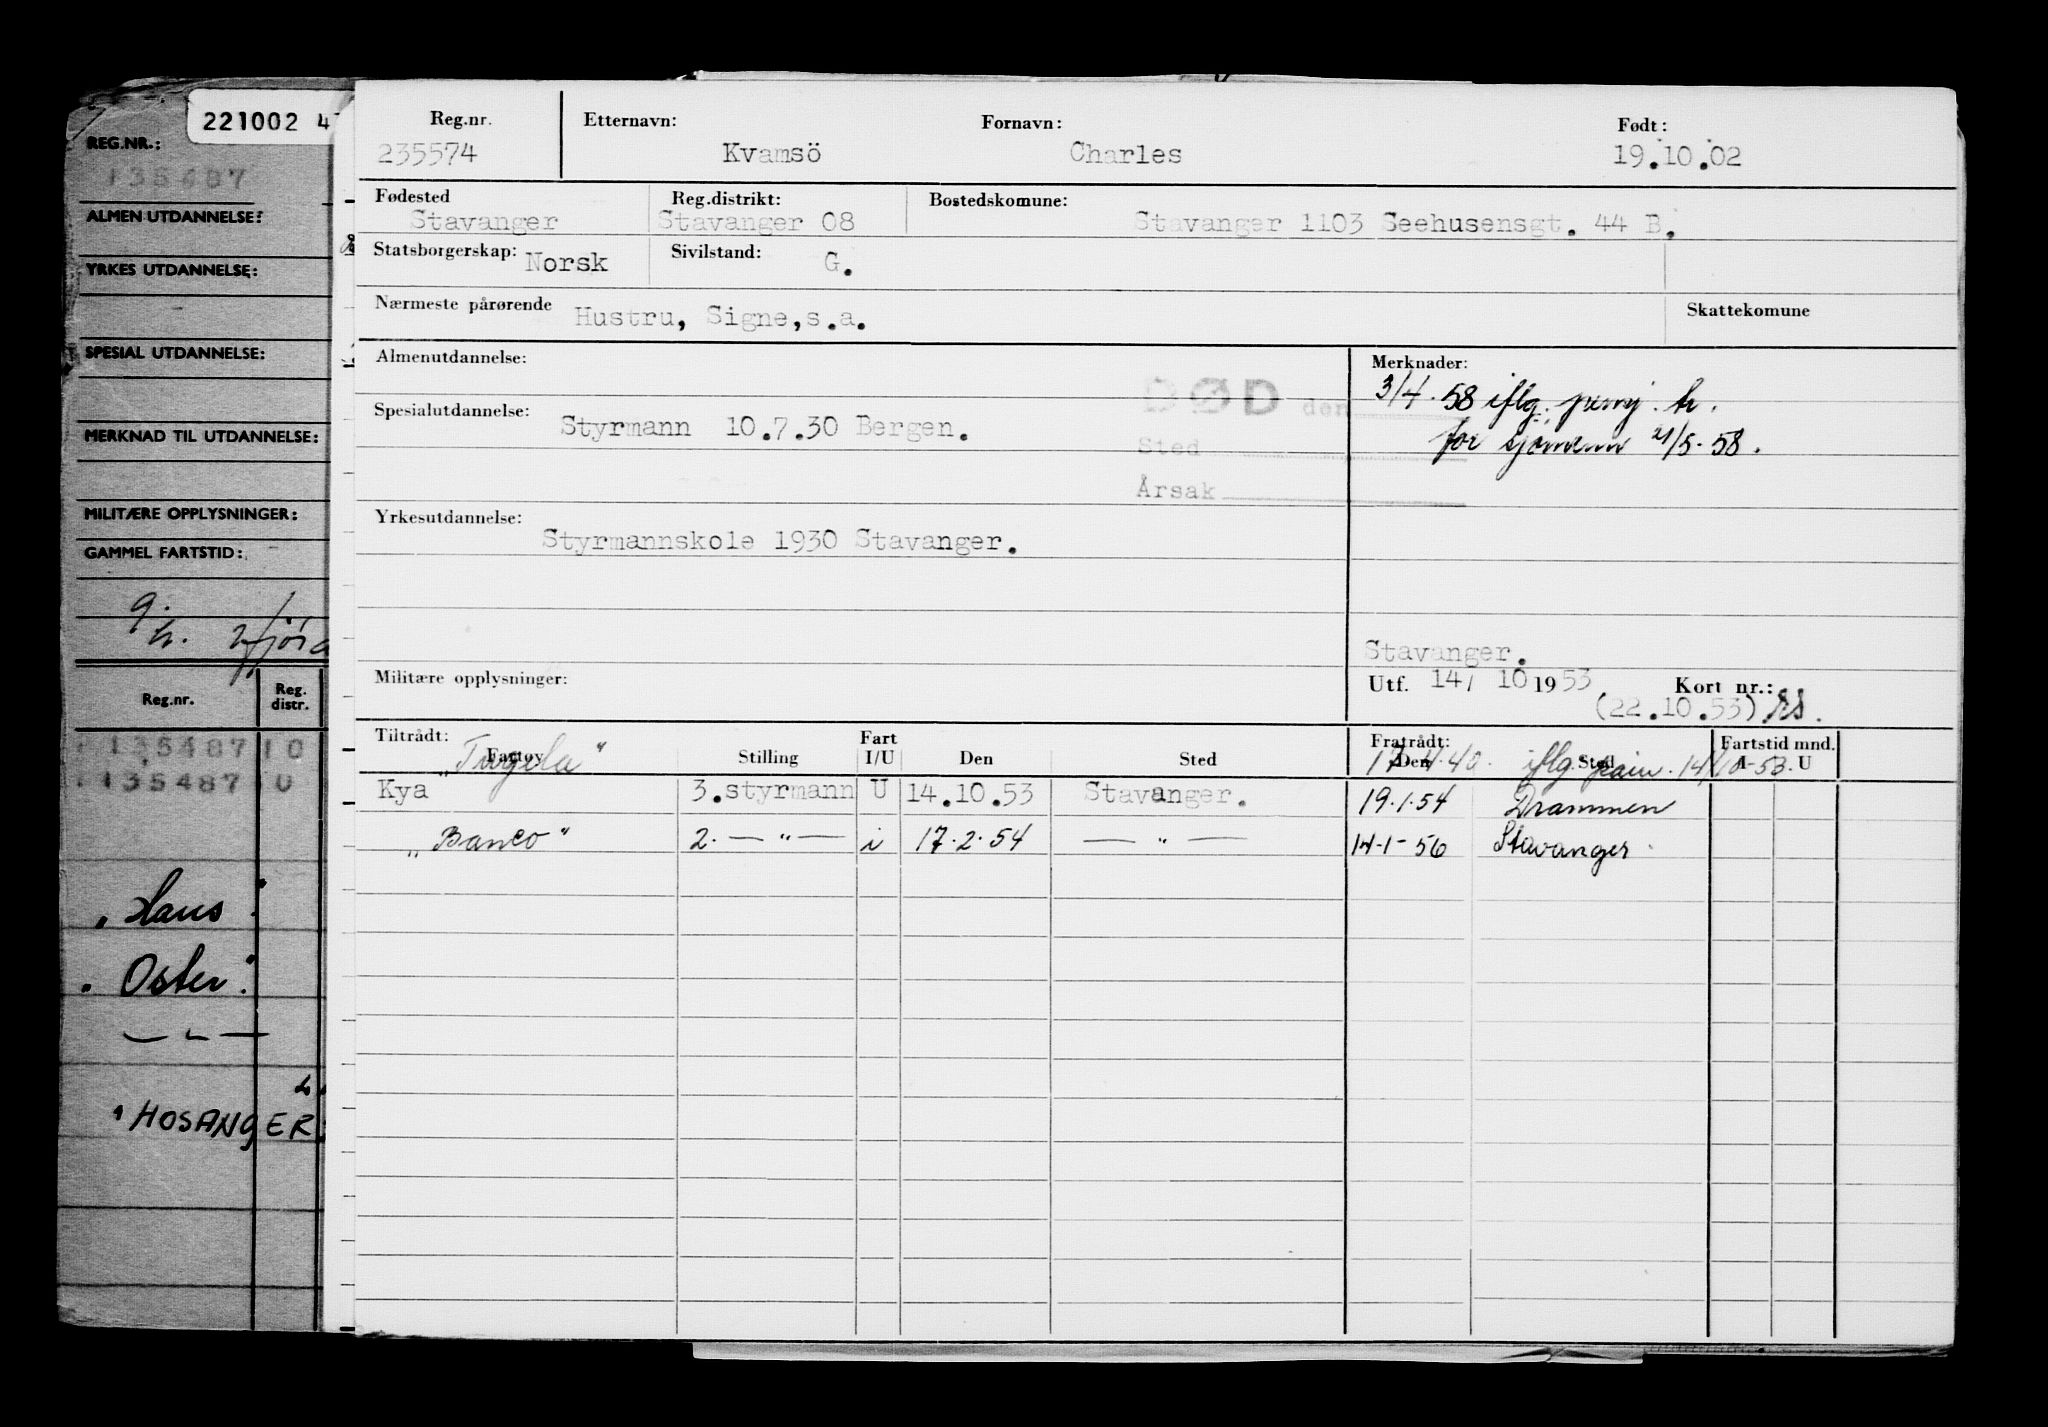 221002 4
REG.NR.:
135487
ALMEN UTDANNELSE:
YRKES UTDANNELSE:
SPESIAL UTDANNELSE:
MERKNAD TIL UTDANNELSE:
MILITÆRE OPPLYSNINGER:
GAMMEL FARTSTID:
Reg.nr. Reg. distr.
135487 10
135487 10
„Haus"
"Oster"
— " —
"HOSANGER
Reg.nr. Etternavn: Fornavn: Født:
235574 Kvamsö Charles 19.10.02
Fødested Reg.distrikt: Bostedskomune:
Stavanger Stavanger 08 Stavanger 1103 Seehusensgt. 44 B.
Statsborgerskap: Norsk Sivilstand: G.
Nærmeste pårørende Hustru, Signe,s.a. Skattekomune
Almenutdannelse: Merknader:
DØD den 3/4.58 iflg. tr.
Spesialutdannelse: Styrmann 10.7.30 Bergen. for sjömenn 21/5-58.
Sted
Årsak
Yrkesutdannelse:
Styrmannskole 1930 Stavanger.
Stavanger.
Militære opplysninger: Utf. 14/ 10 1953 Kort nr.:
(22.10.53) RS.
Tiltrådt: Fart Fratrådt: Fartstid mnd.
Fartøy Stilling I/U Den Sted Den Sted I U
„Tugela" 17.4.40. iflg. 14/10-53.
Kya 3.styrmann U 14.10.53 Stavanger. 19.1.54 Drammen
„Banco" 2. — " — i 17.2.54 — " — 14-1-56 Stavanger